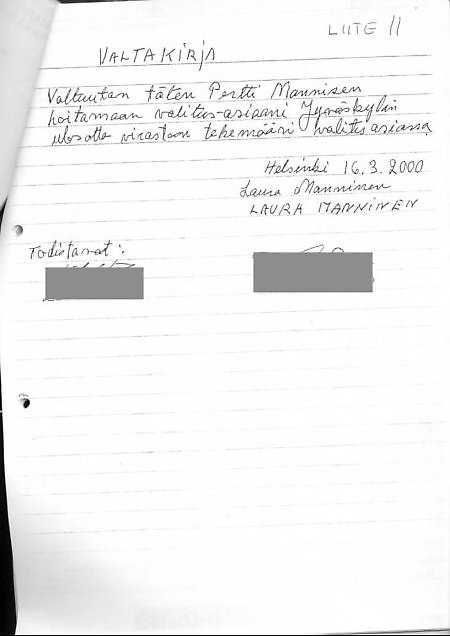 LIITE 11
VALTAKIRJA
Valtuutan täten Pertti Mannisen
hoitamaan valitus-asiaani Jyväskylän
ulosotto virastoon tekemääni valitusasiassa
Helsinki 16.3.2000
Laura Manninen
LAURA MANNINEN
Todistavat: